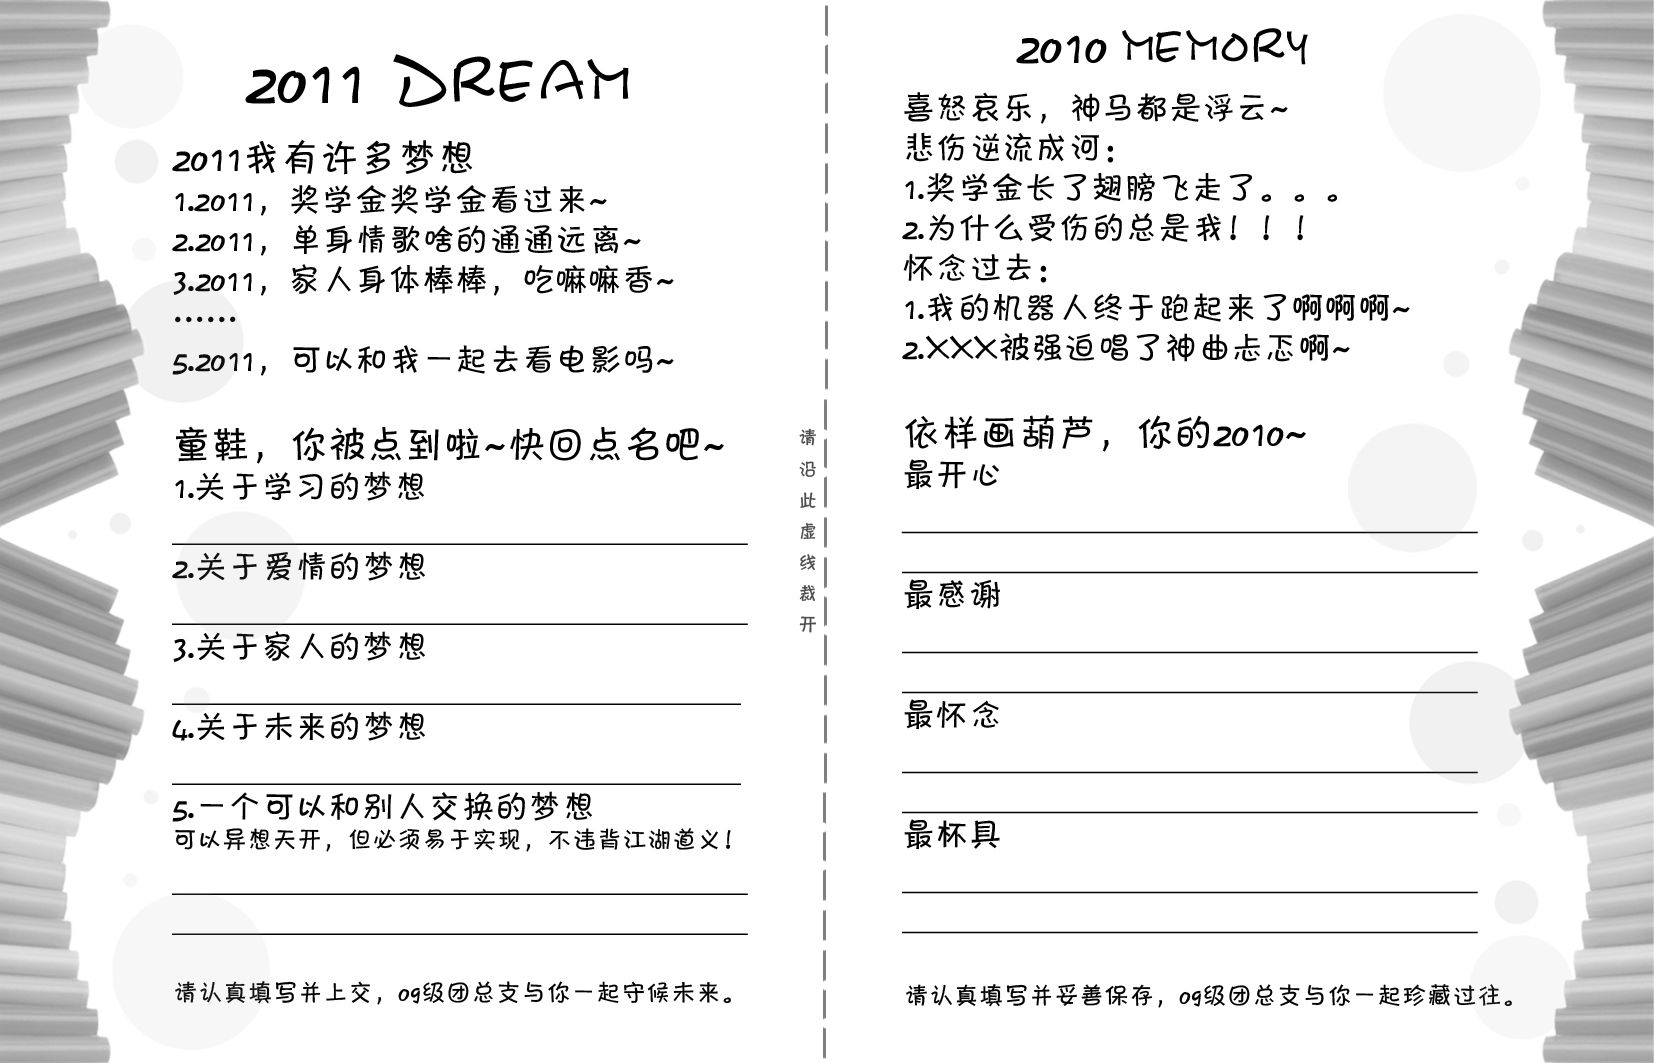 2011 DREAM
2011我有许多梦想
1.2011，奖学金奖学金看过来~
2.2011，单身情歌啥的通通远离~
3.2011，家人身体棒棒，吃嘛嘛香~
……
5.2011，可以和我一起去看电影吗~
童鞋，你被点到啦~快回点名吧~
1.关于学习的梦想
2.关于爱情的梦想
3.关于家人的梦想
4.关于未来的梦想
5.一个可以和别人交换的梦想
可以异想天开，但必须易于实现，不违背江湖道义！
请认真填写并上交，09级团总支与你一起守候未来。
请沿此虚线裁开
2010 MEMORY
喜怒哀乐，神马都是浮云~
悲伤逆流成河：
1.奖学金长了翅膀飞走了。。。
2.为什么受伤的总是我！！！
怀念过去：
1.我的机器人终于跑起来了啊啊啊~
2.XXX被强迫唱了神曲忐忑啊~
依样画葫芦，你的2010~
最开心
最感谢
最怀念
最杯具
请认真填写并妥善保存，09级团总支与你一起珍藏过往。